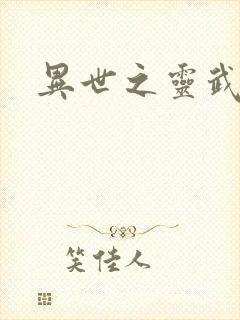 異世之靈武
笑佳人